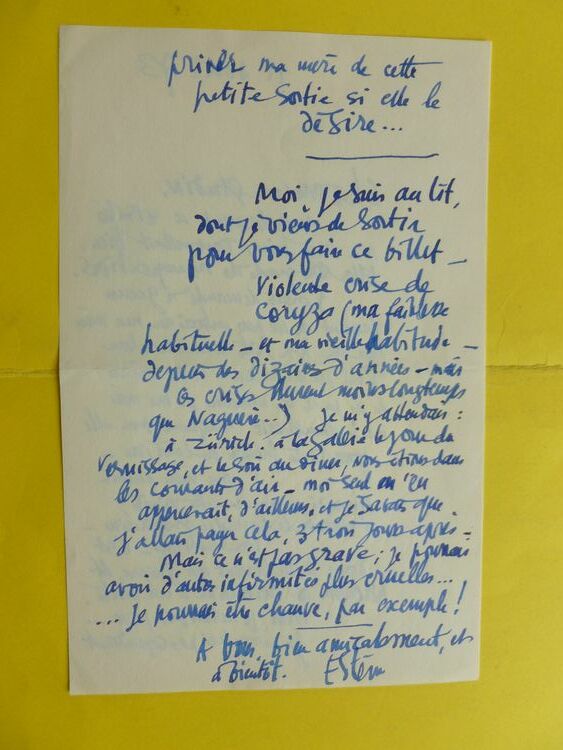 priver ma mère de cette
petite sortie si elle le
désire...
Moi, je suis au lit,
dont je viens de sortir
pour vous faire ce billet —
Violente crise de
Coryza (ma faiblesse
habituelle — et ma vieille habitude —
depuis des dizaines d'années — mais
les crises durent moins longtemps
que Naguère..) Je m'y attendais :
à Zürich. à la Galerie le jour du
Vernissage, et le soir au dîner, nous étions dans
les courants d'air — moi seul m'en
apercevait, d'ailleurs, et je savais que
j'allais payer cela, 3 jours après —
Mais ce n'est pas grave ; je pourrais
avoir d'autres infirmités plus cruelles...
... Je pourrais être chauve, par exemple !
A vous, bien amicalement, et
à bientôt.